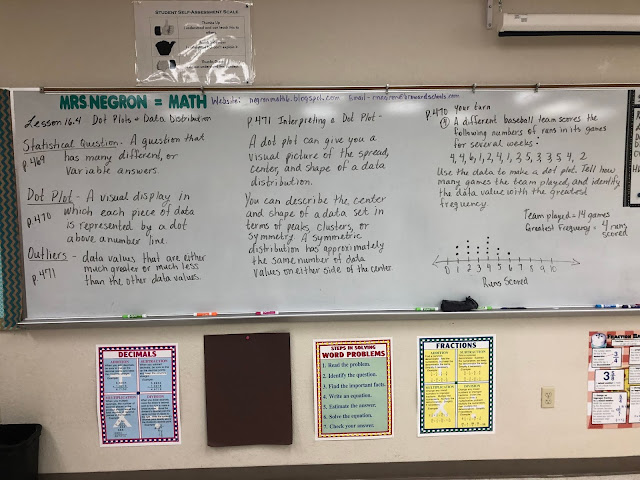 STUDENT SELF-ASSESSMENT SCALE
Thumbs Up
MRS NEGRON = MATH Website: negronmath6.blogspot.com Email-
Lesson 16.4 Dot Plots & Data Distribution
Statistical Question - A question that
p.469 has many different, or
variable answers.
Dot Plot - A visual display in
p.470 which each piece of data
is represented by a dot
above a number line.
Outliers - data values that are either
p.471 much greater or much less
than the other data values.
p.471 Interpreting a Dot Plot -
A dot plot can give you a
visual picture of the spread,
center, and shape of a data
distribution.
You can describe the center
and shape of a data set in
terms of peaks, clusters, or
symmetry. A symmetric
distribution has approximately
the same number of data
values on either side of the center
p.470 Your turn
A different baseball team scores the
following numbers of runs in its games
for several weeks:
4, 4, 6, 1, 2, 4, 1, 2, 5, 3, 3, 5, 4, 2
Use the data to make a dot plot. Tell how
many games the team played, and identify
the data value with the greatest
frequency.
Team played = 14 games
Greatest Frequency = 4 runs
scored
0 1 2 3 4 5 6 7 8 9 10
Runs Scored
DECIMALS
ADDITION SUBTRACTION
MULTIPLICATION DIVISION
STEPS IN SOLVING
WORD PROBLEMS
1. Read the problem.
2. Identify the question.
3. Find the important facts.
4. Write an equation.
5. Estimate the answer.
6. Solve the equation.
7. Check your answer.
FRACTIONS
ADDITION SUBTRACTION
MULTIPLICATION DIVISION